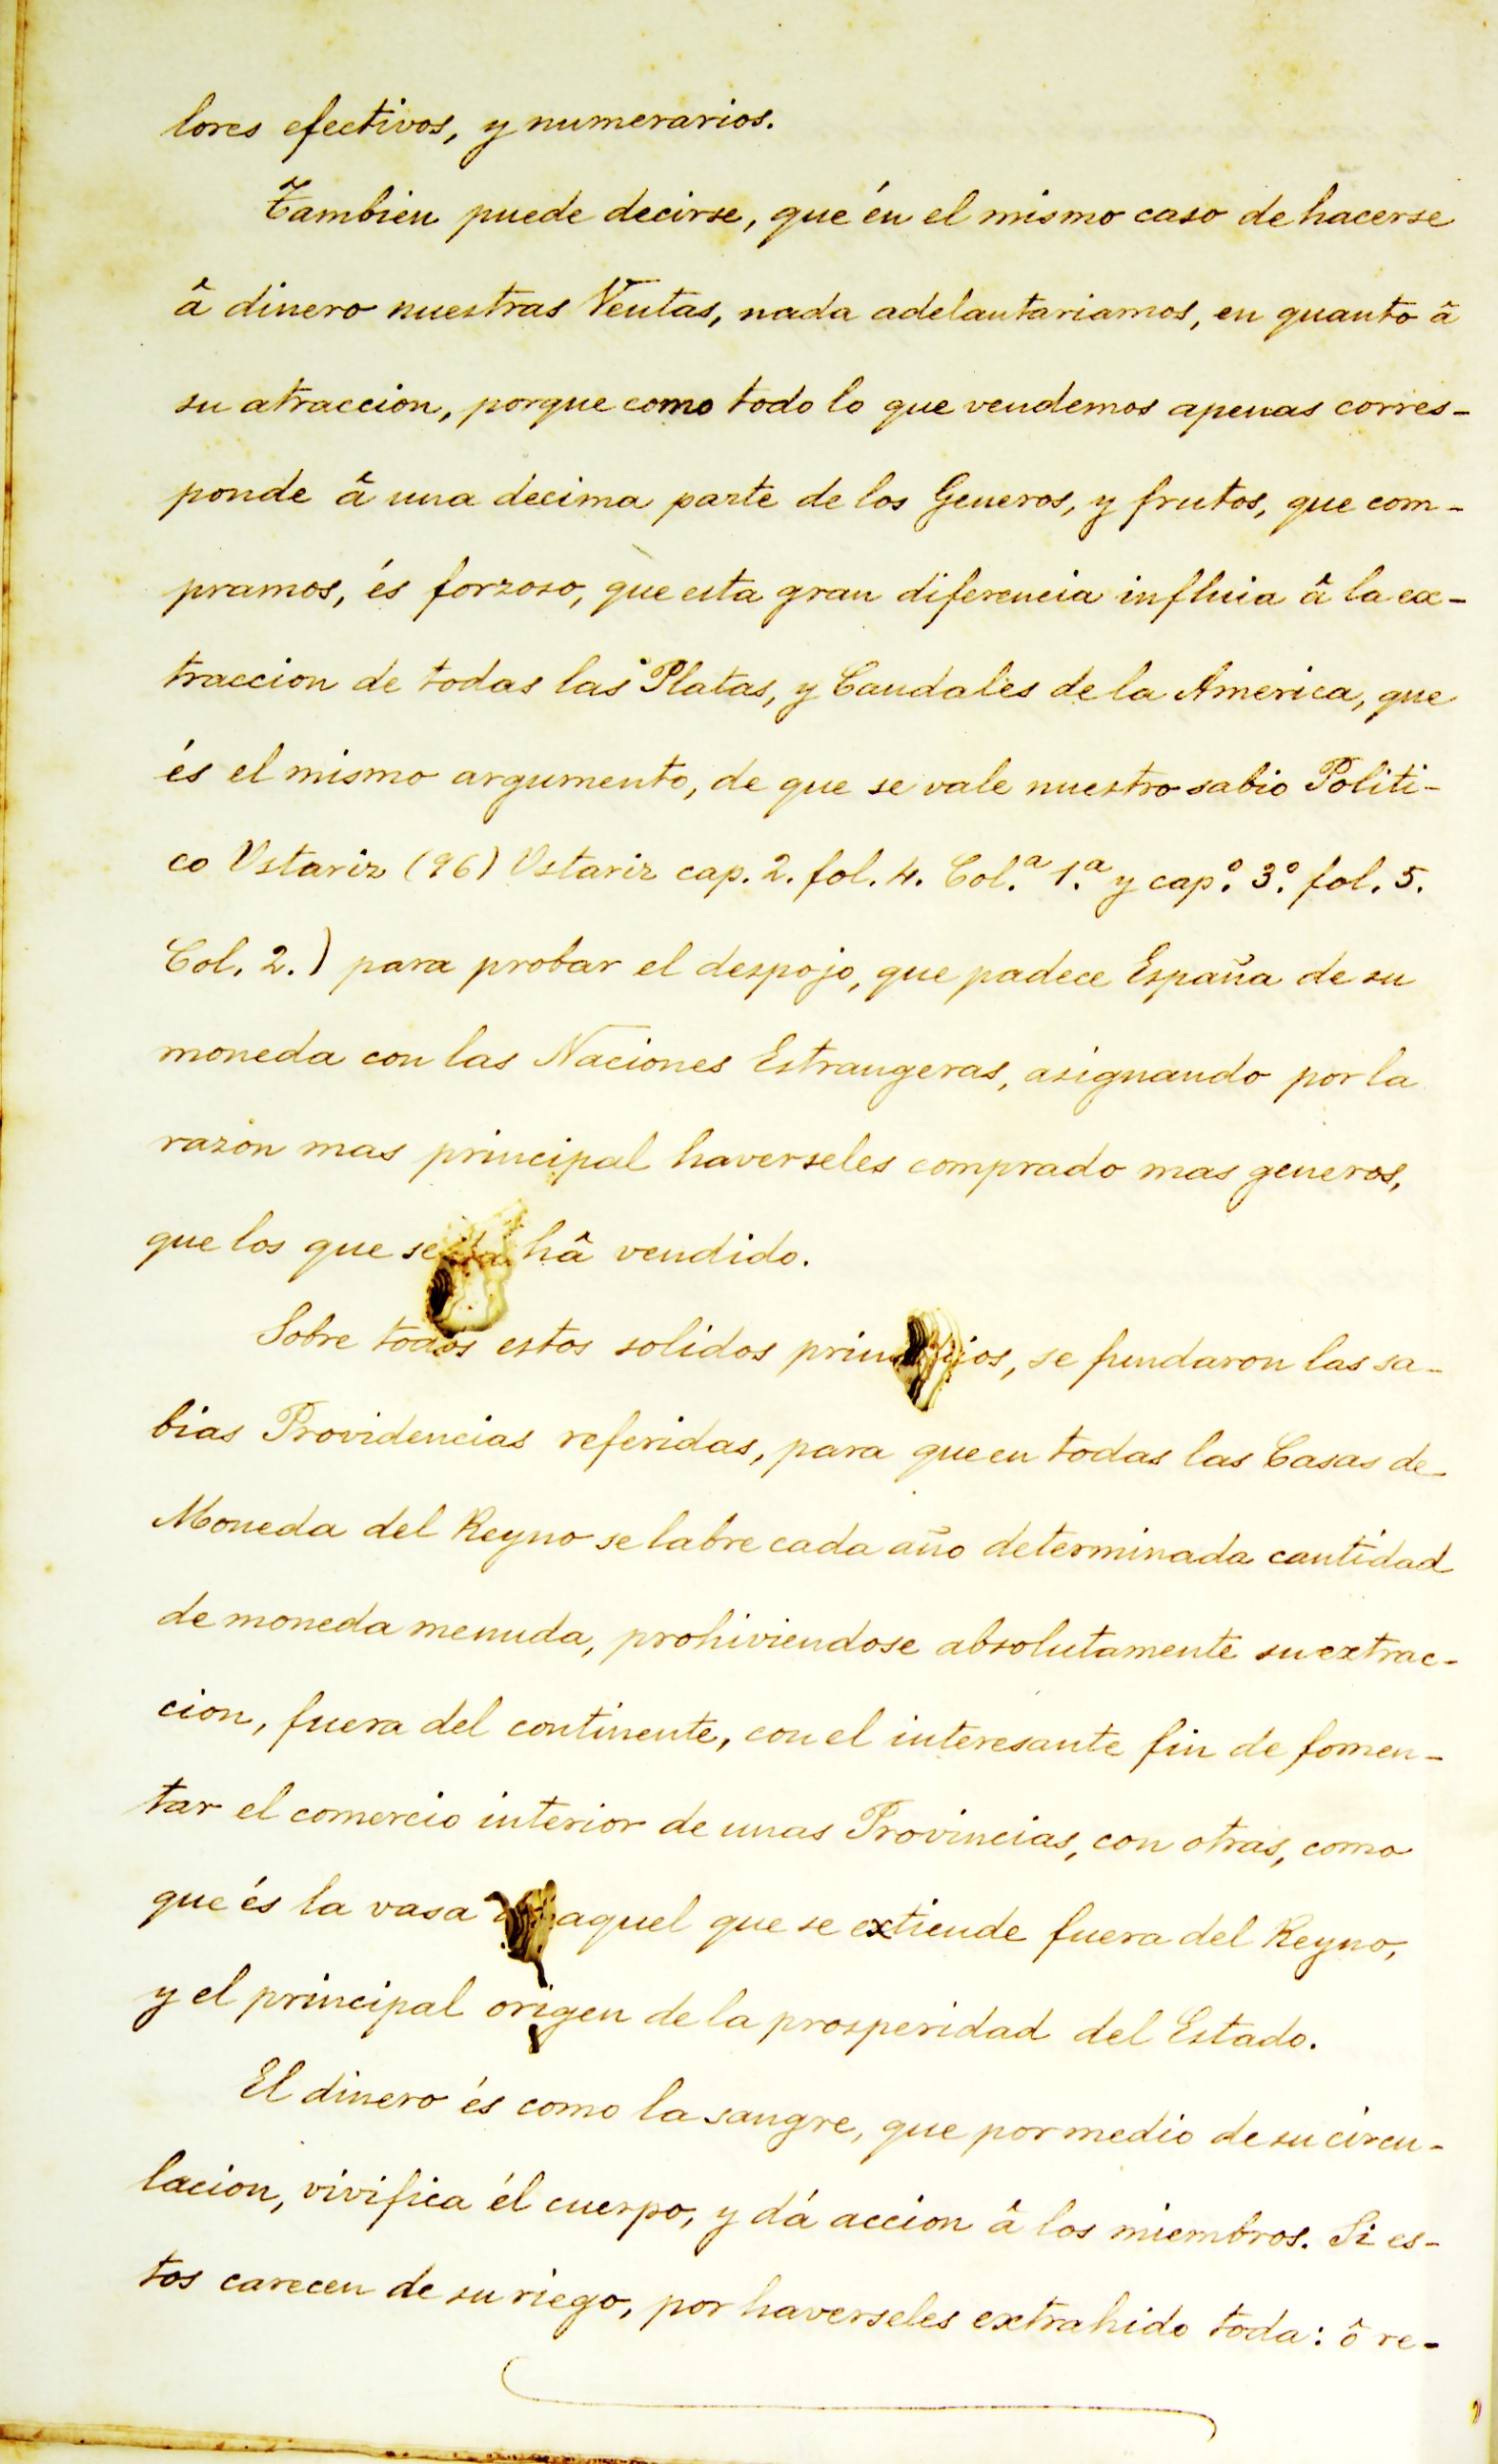 lores efectivos, y numerarios.
Tambien puede decirse, que én el mismo caso de hacerse
â dinero nuestras Ventas, nada adelantariamos, en quanto â
su atraccion, porque como todo lo que vendemos apenas corres-
ponde â una decima parte de los Generos, y frutos, que com-
pramos, és forzoso, que esta gran diferencia influia â la ex-
traccion de todas las Platas, y Caudales de la America, que
és el mismo argumento, de que se vale nuestro sabio Politi-
co Ustariz (96) Ustariz cap. 2. fol. 4. Col.ª 1.ª y cap.º 3.º fol. 5.
Col. 2.) para probar el despojo, que padece España de su
moneda con las Naciones Estrangeras, asignando por la
razon mas principal haverseles comprado mas generos,
que los que se hâ vendido.
Sobre todos estos solidos principios, se fundaron las sa-
bias Providencias referidas, para que en todas las Casas de
Moneda del Reyno se labre cada año determinada cantidad
de moneda menuda, prohiviendose absolutamente su extrac-
cion, fuera del continente, con el interesante fin de fomen-
tar el comercio interior de unas Provincias, con otras, como
que és la vasa aquel que se extiende fuera del Reyno,
y el principal origen de la prosperidad del Estado.
El dinero és como la sangre, que por medio de su circu-
lacion, vivifica él cuerpo, y dá accion â los miembros. Si es-
tos carecen de su riego, por haverseles extrahido toda: ô re-